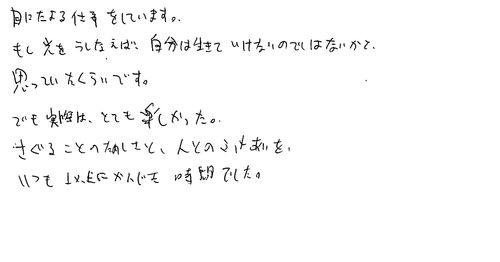 目にたよる仕事をしています。
もし光をうしなえば、自分は生きていけないのではないかと、
思っていたくらいです。
でも実際は、とても楽しかった。
さぐることへの楽しさと、人とのふれあいを、
いつも以上にかんじた時間でした。